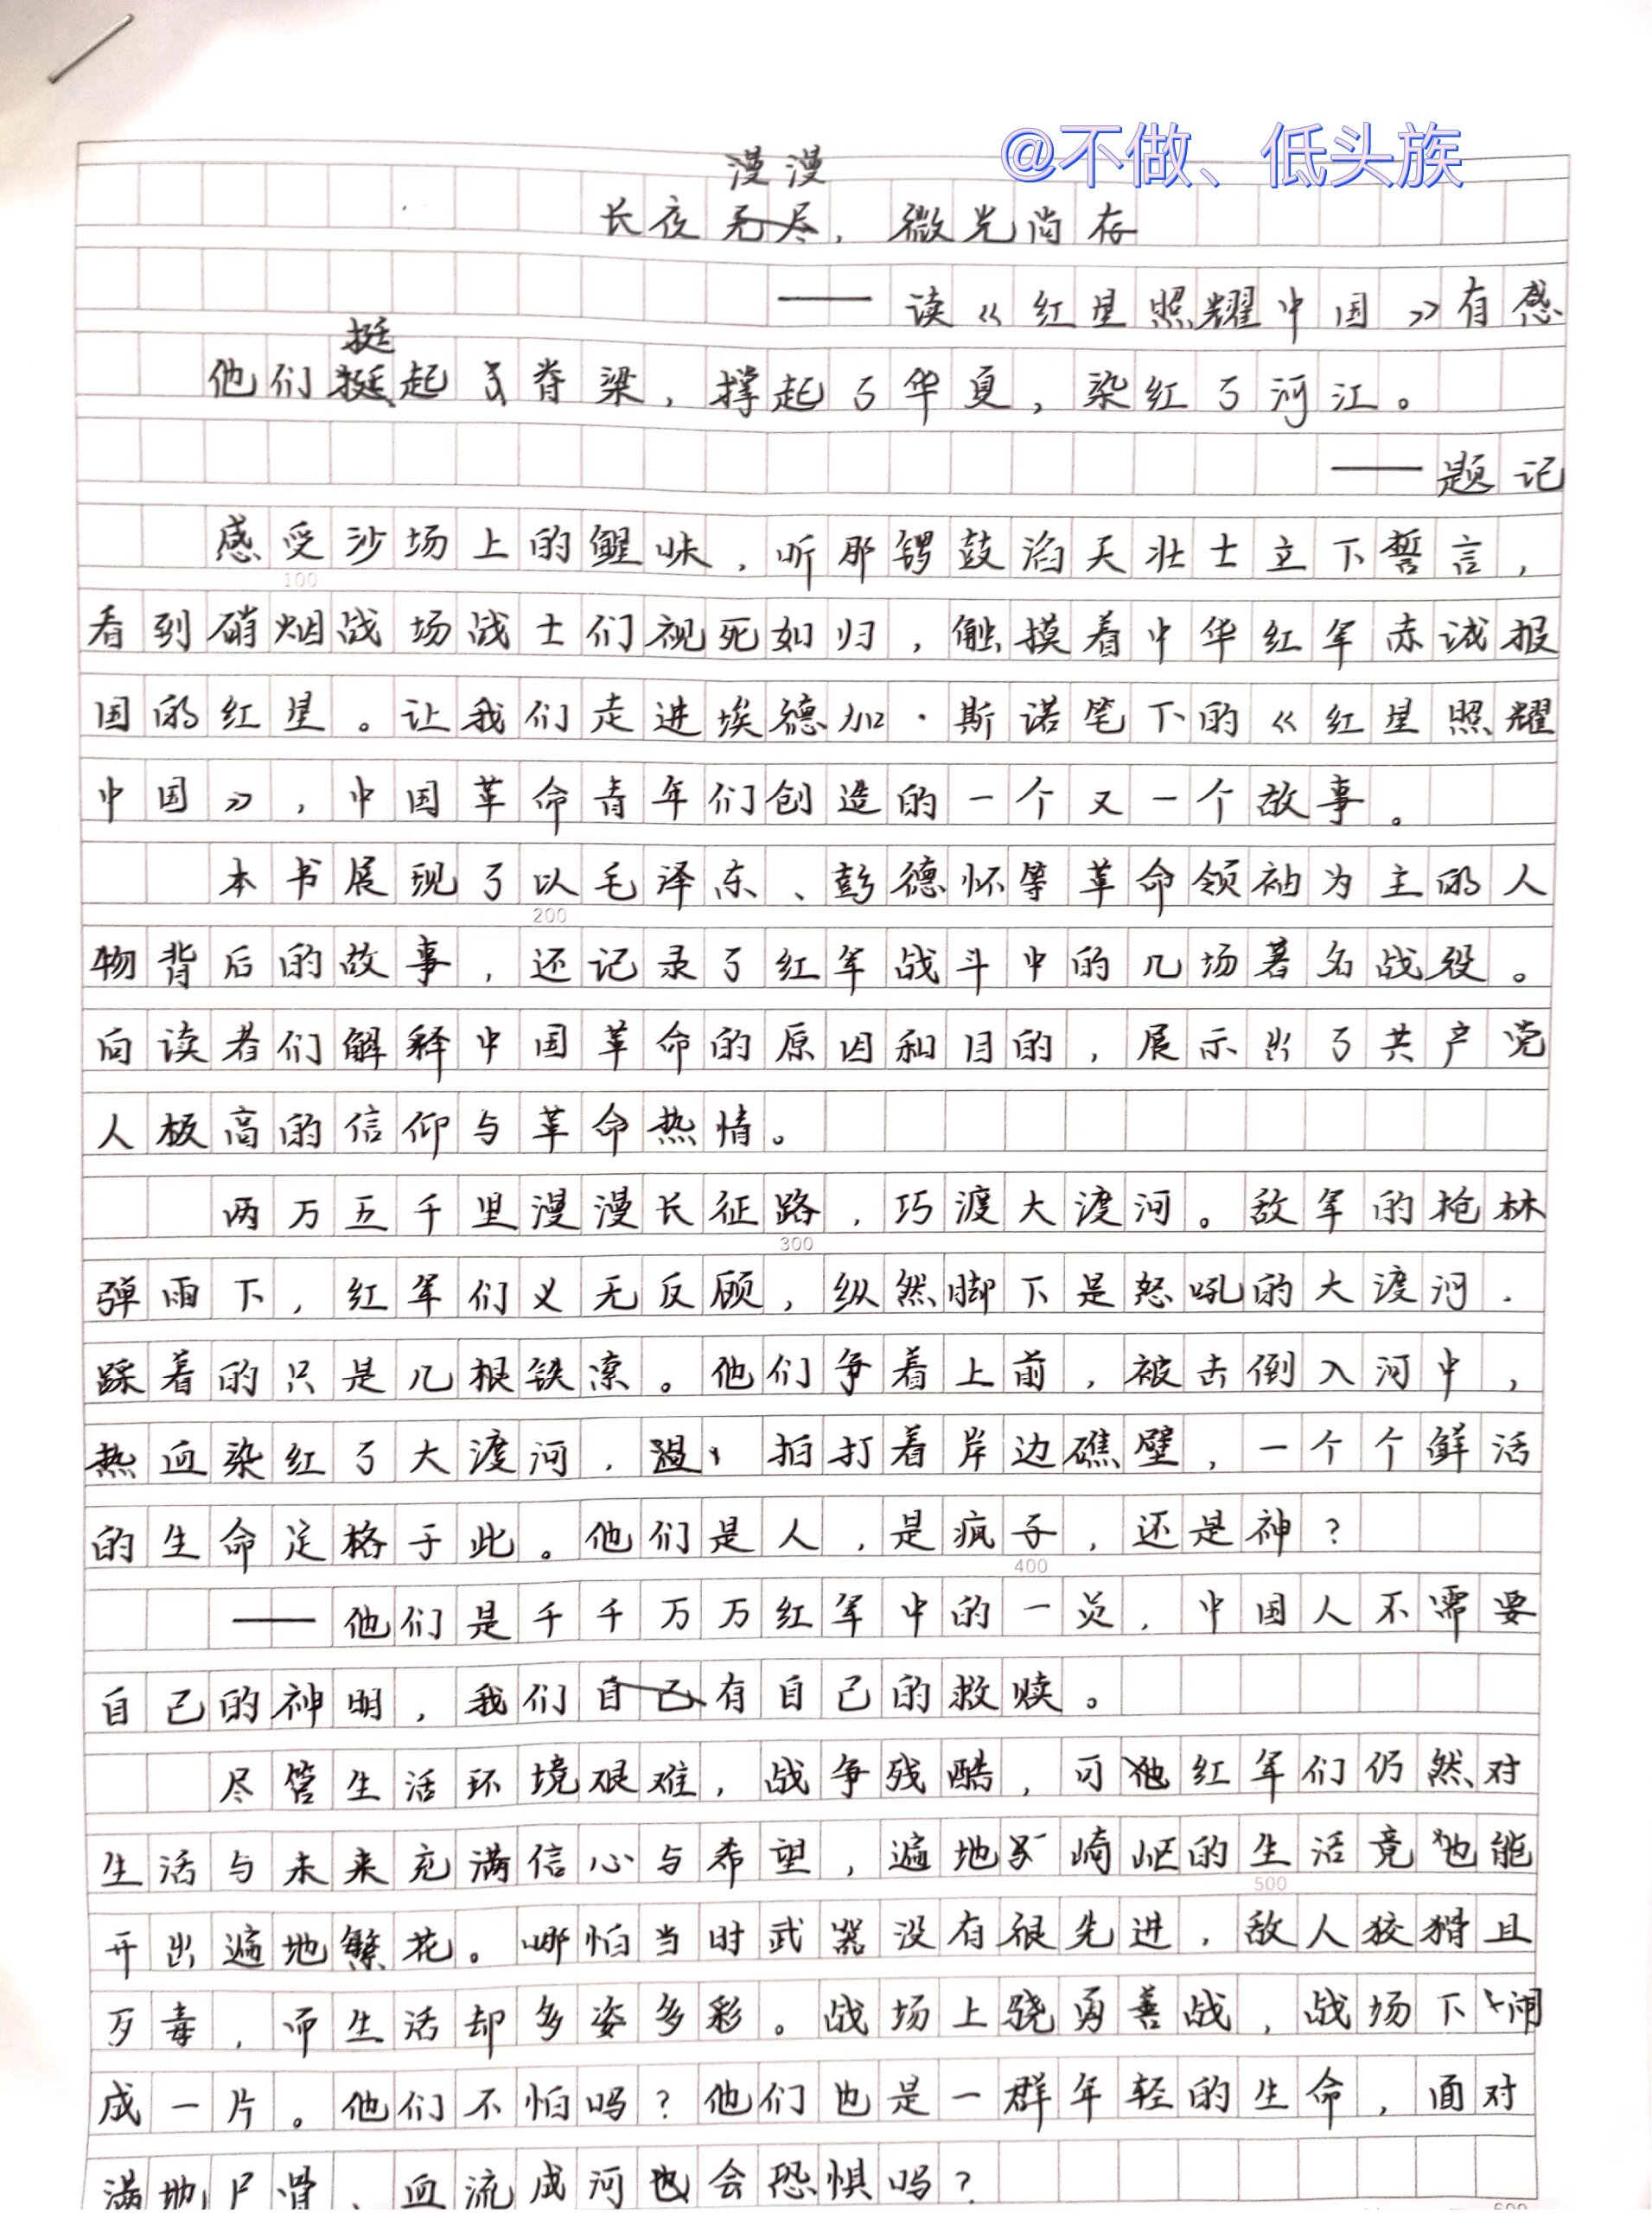 @不做、低头族
漫漫
长夜无尽，微光尚存
——读《红星照耀中国》有感
挺
他们挺起了脊梁，撑起了华夏，染红了河江。
——题记
感受沙场上的鲲味，听那锣鼓滔天壮士立下誓言，
100
看到硝烟战场战士们视死如归，触摸着中华红军赤诚报
国的红星。让我们走进埃德加·斯诺笔下的《红星照耀
中国》，中国革命青年们创造的一个又一个故事。
本书展现了以毛泽东、彭德怀等革命领袖为主的人
200
物背后的故事，还记录了红军战斗中的几场著名战役。
向读者们解释中国革命的原因和目的，展示出了共产党
人极高的信仰与革命热情。
两万五千里漫漫长征路，巧渡大渡河。敌军的枪林
300
弹雨下，红军们义无反顾，纵然脚下是怒吼的大渡河．
踩着的只是几根铁索。他们争着上前，被击倒入河中，
热血染红了大渡河，拍打着岸边礁壁，一个个鲜活
的生命定格于此。他们是人，是疯子，还是神？
400
——他们是千千万万红军中的一员，中国人不需要
自己的神明，我们自己有自己的救赎。
尽管生活环境艰难，战争残酷，可他红军们仍然对
生活与未来充满信心与希望，遍地崎岖的生活竟也能
500
开出遍地繁花。哪怕当时武器没有很先进，敌人狡猾且
歹毒，而生活却多姿多彩。战场上骁勇善战，战场下闹
成一片。他们不怕吗？他们也是一群年轻的生命，面对
满地尸骨、血流成河也会恐惧吗？
600